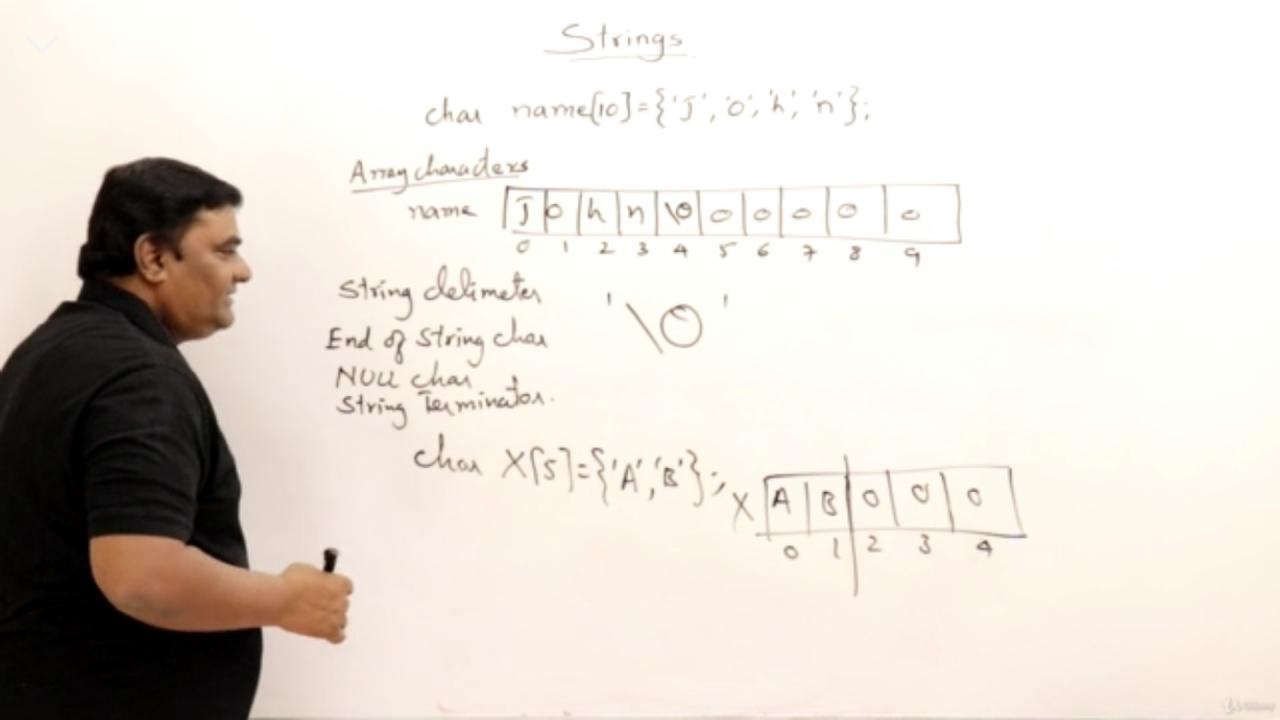 Strings
char name[10]={'J','o','h','n'};
Array characters
name J o h n \0 0 0 0 0 0
0 1 2 3 4 5 6 7 8 9
String delimeter '\0'
End of string char
NULL char
String Terminator.
char X[5]={'A','B'};
X A B 0 0 0
0 1 2 3 4
Udemy